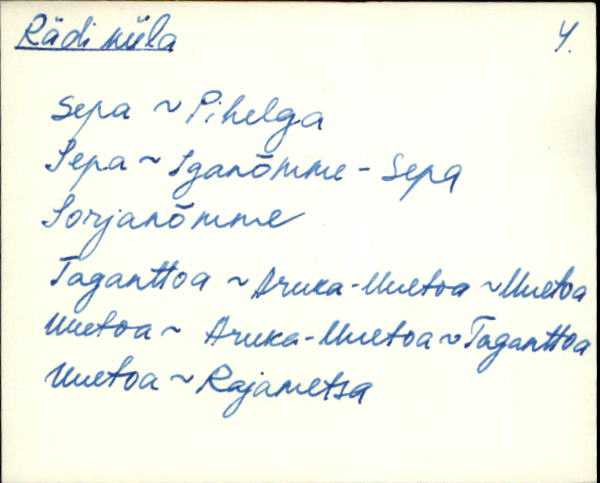 Rädi küla 4.
Sepa ~ Pihelga
Sepa ~ Iganõmme - Sepa
Sorjanõmme
Taganttoa ~ Aruka-Uuetoa ~ Uuetoa
Uuetoa ~ Aruka-Uuetoa ~ Taganttoa
Uuetoa ~ Rajametsa